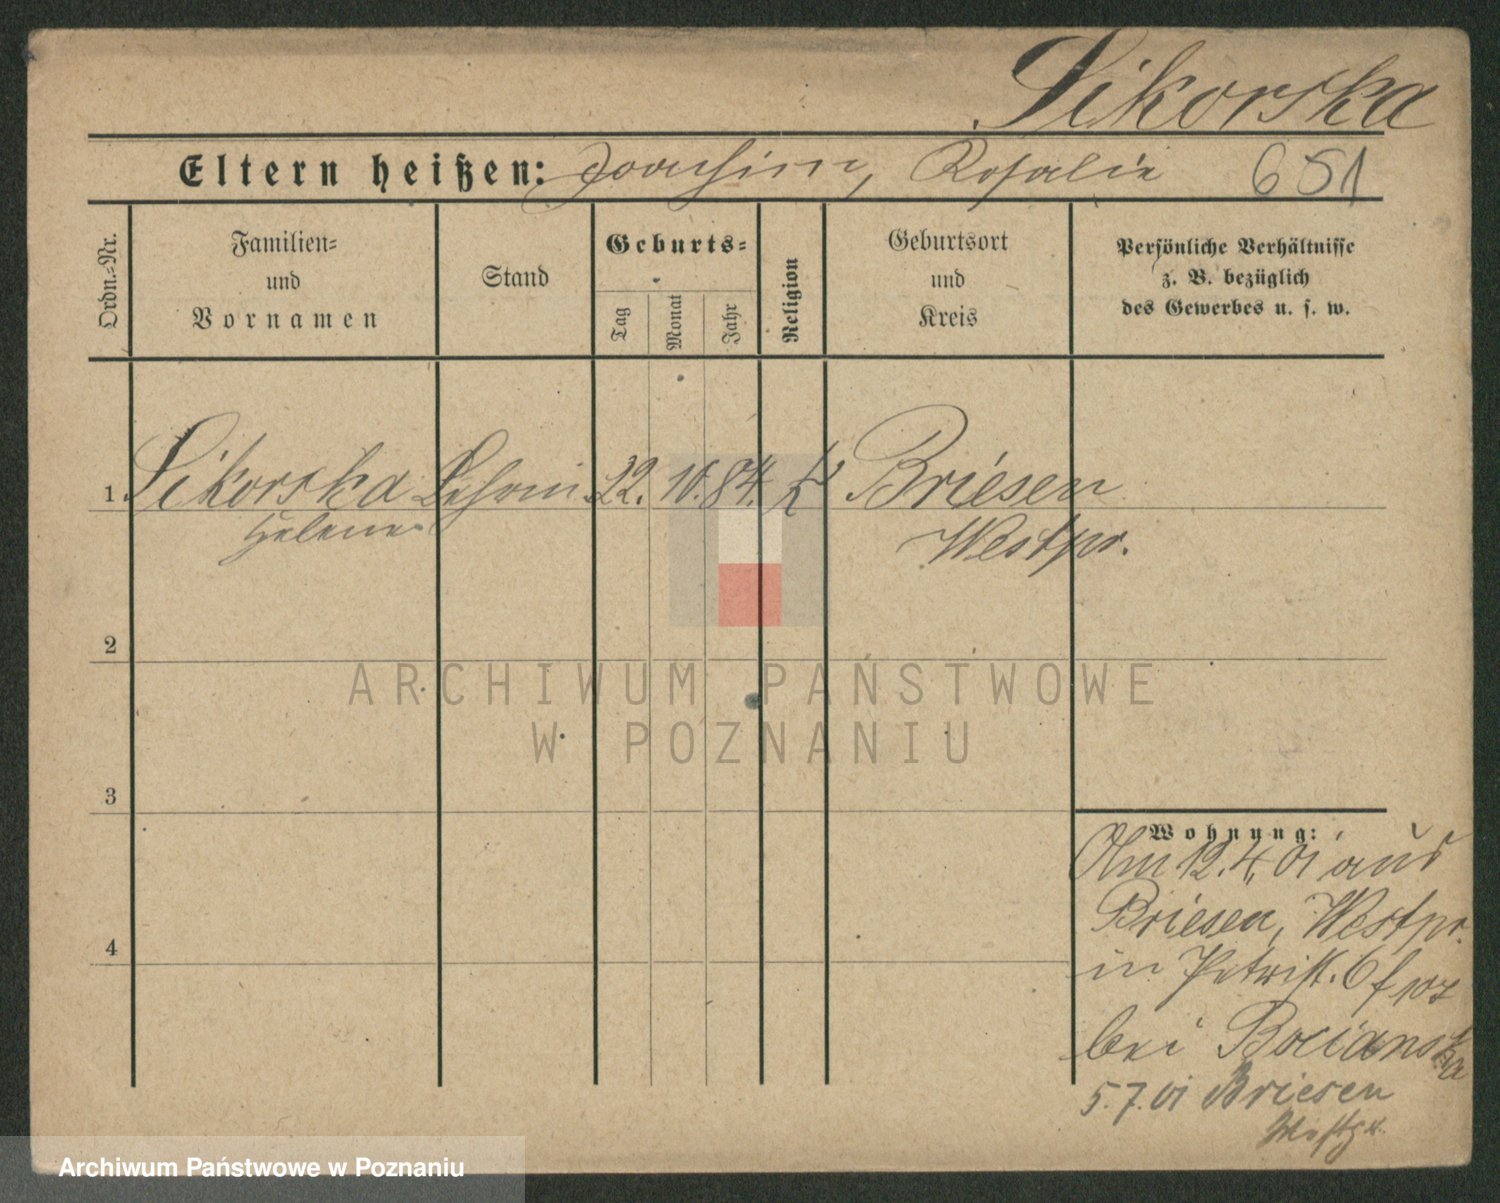 Sikorska
Eltern heißen: Joachim, Rosalie 651
Ordn.-Nr.
Familien-
und
Vornamen
Stand
Geburts-
Tag
Monat
Jahr
Religion
Geburtsort
und
Kreis
Persönliche Verhältnisse
z. B. bezüglich
des Gewerbes u. s. w.
1. Sikorska 22. 10. 84. k Briesen
Helene Westpr.
2
3
4
Wohnung:
Am 12.4.01 aus
Briesen, Westpr.
in Petristr. 6
bei Bocianska
5.7.01 Briesen
Westpr.
ARCHIWUM PAŃSTWOWE
W POZNANIU
Archiwum Państwowe w Poznaniu